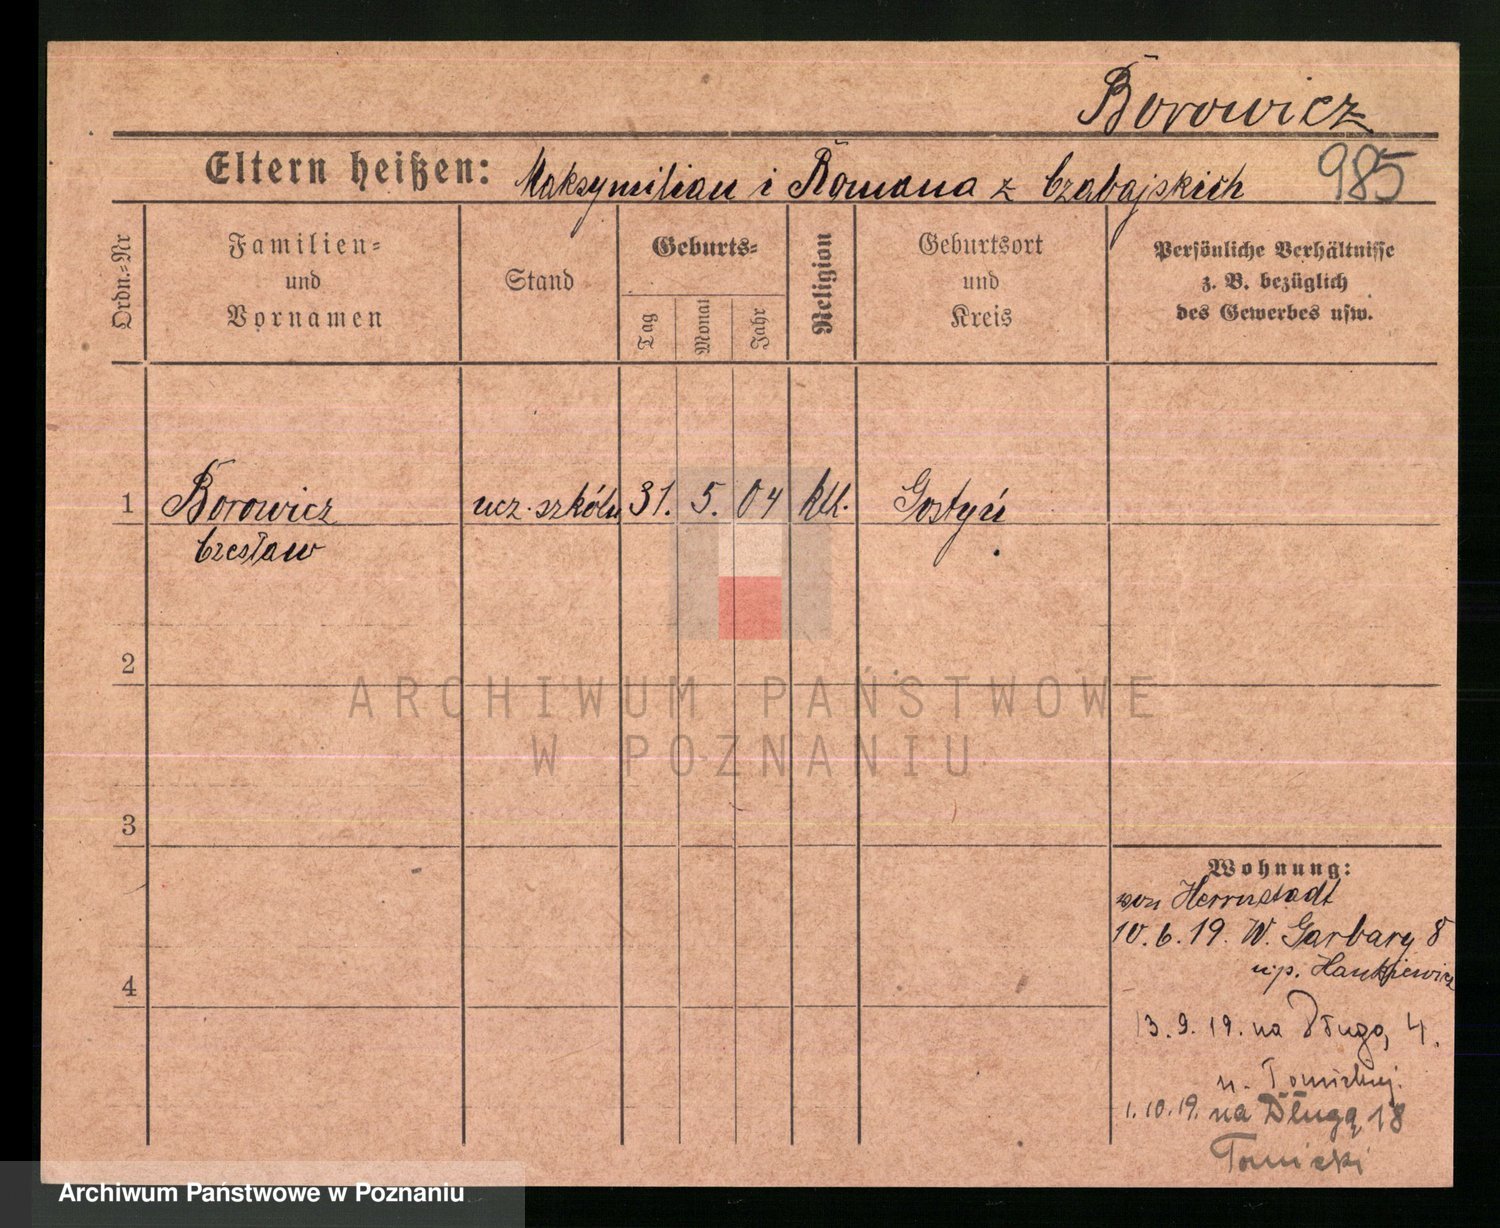 Borowicz
Eltern heißen: Maksymilian i Romana z Czabajskich 985
Ordn.=Nr
Familien=
und
Vornamen
Stand
Geburts=
Tag
Monat
Jahr
Religion
Geburtsort
und
Kreis
Persönliche Verhältnisse
z. B. bezüglich
des Gewerbes usw.
1 Borowicz ucz. szkóln 31. 5. 04 ktl. Gostyń
Czesław
2
ARCHIWUM PAŃSTWOWE
W POZNANIU
3
4
Wohnung:
von Herrnstadt
10.6.19. W. Garbary 8
u p. Hankiewicz
13.9.19. na Długą 4.
u. Tomickiej.
1.10.19. na Długą 18
Tomicki
Archiwum Państwowe w Poznaniu